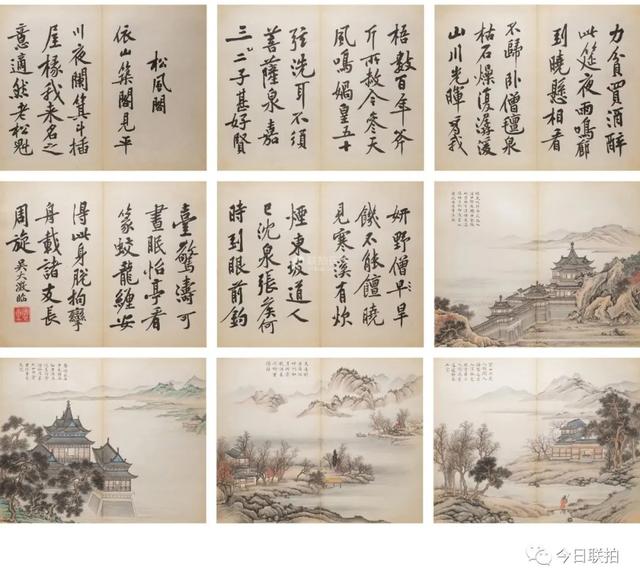 松風閣
依山築閣見平
川夜闌箕斗插
屋椽我来名之
意適然老松魁
梧數百年斧
斤所赦今參天
風鳴媧皇五十
弦洗耳不須
菩薩泉嘉
三二子甚好賢
力貧買酒醉
此筵夜雨鳴廊
到曉懸相看
不歸卧僧氈泉
枯石燥復潺湲
山川光暉為我
妍野僧早旱
饑不能饘曉
見寒溪有炊
煙東坡道人
已沈泉張侯何
時到眼前釣
臺驚濤可
晝眠怡亭看
篆蛟龍纏安
得此身脫拘攣
舟載諸友長
周旋 吳大澂臨
今日联拍